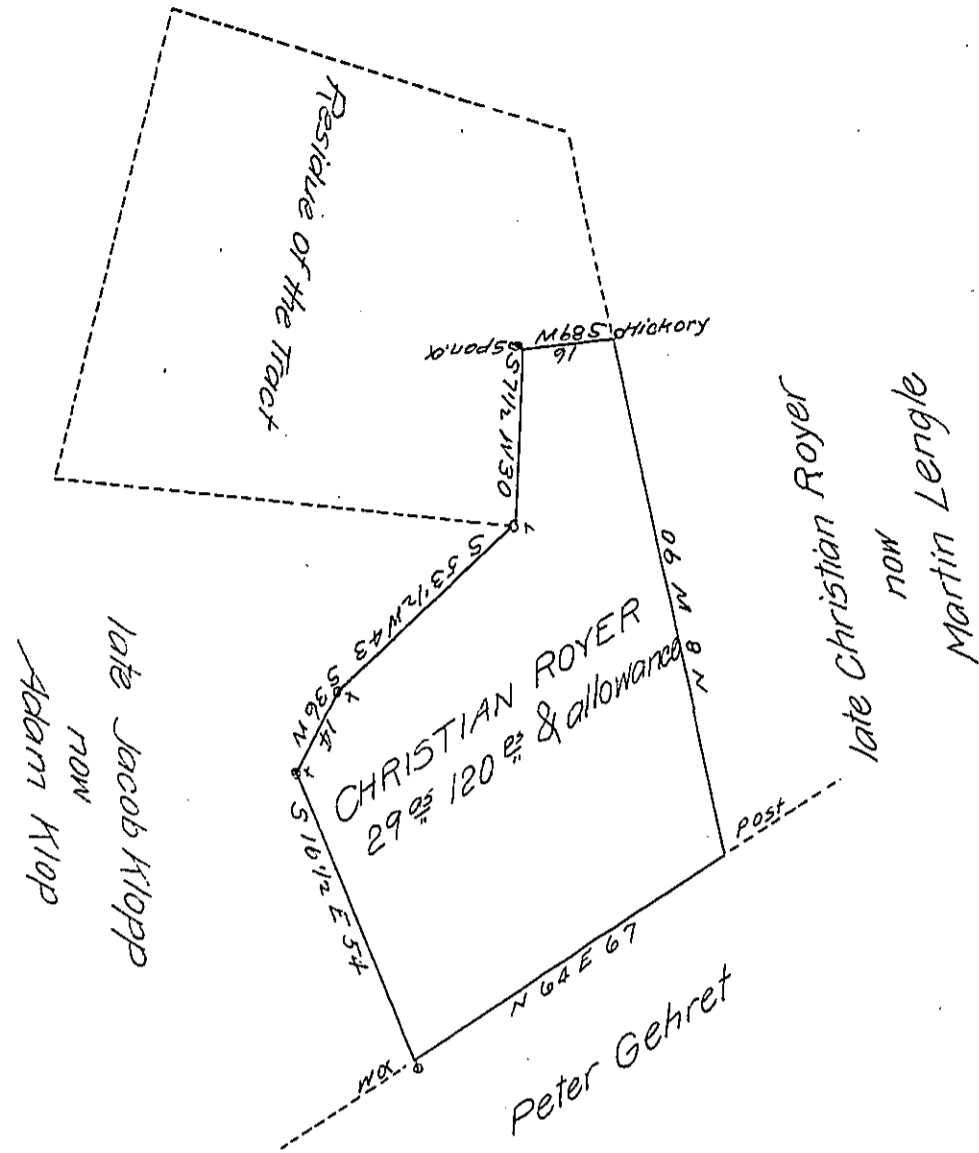 Residue of the Tract
Hickory
S 89 W
16
Span. O.
S 7 1/2 W 30
S 53 1/2 W 43
S 36 W
14
S 16 1/2 E 54
W O
N 64 E 67
Post
N 8 W 90
CHRISTIAN ROYER
29 as 120 ps & allowance
late Christian Royer
now
Martin Lengle
late Jacob Klopp
now
Adam Klop
Peter Gehret